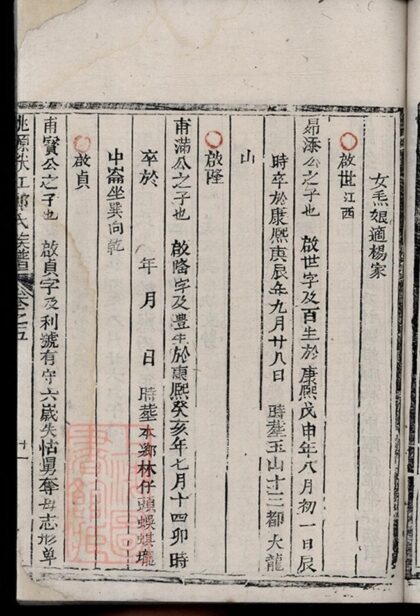 女𤆬娘適楊家
啟世江西
昴添公之子也 啟世字及百生於康熙戊申年八月初一日辰
時卒於康熙庚辰年九月廿八日 時塟玉山十三都大龍
山
啟隆
甫滿公之子也 啟隆字及豊生於康熙癸亥年七月十四卯時
卒於 年 月 日 時塟本鄉林仔頭蜈蜞壠
中崙坐巽向乾
啟貞
甫賓公之子也 啟貞字及利號有守六歲失怙舅奪母志形單
桃源 氏族譜 卷之五